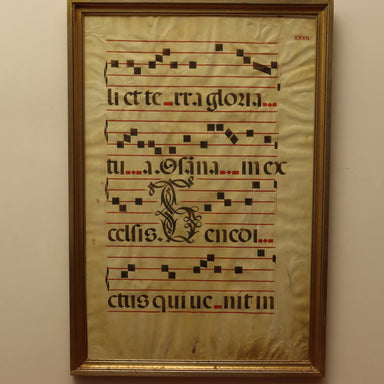 XXXII
li et te_rra gloria...
tu...a. Osana...in ex
celsis. Benedi...
ctus qui ue_nit in